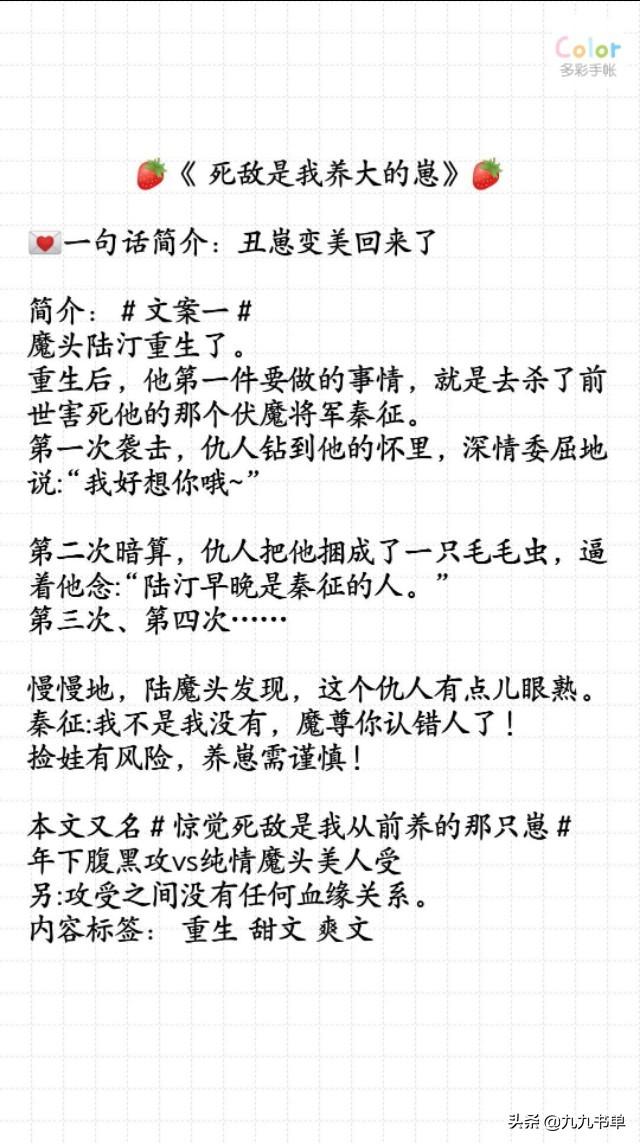 Color
多彩手帐
《 死敌是我养大的崽》
一句话简介：丑崽变美回来了
简介： # 文案一 #
魔头陆汀重生了。
重生后，他第一件要做的事情，就是去杀了前
世害死他的那个伏魔将军秦征。
第一次袭击，仇人钻到他的怀里，深情委屈地
说:“我好想你哦~”
第二次暗算，仇人把他捆成了一只毛毛虫，逼
着他念:“陆汀早晚是秦征的人。”
第三次、第四次……
慢慢地，陆魔头发现，这个仇人有点儿眼熟。
秦征:我不是我没有，魔尊你认错人了！
捡娃有风险，养崽需谨慎！
本文又名 # 惊觉死敌是我从前养的那只崽 #
年下腹黑攻vs纯情魔头美人受
另:攻受之间没有任何血缘关系。
内容标签： 重生 甜文 爽文
头条 @九九书单